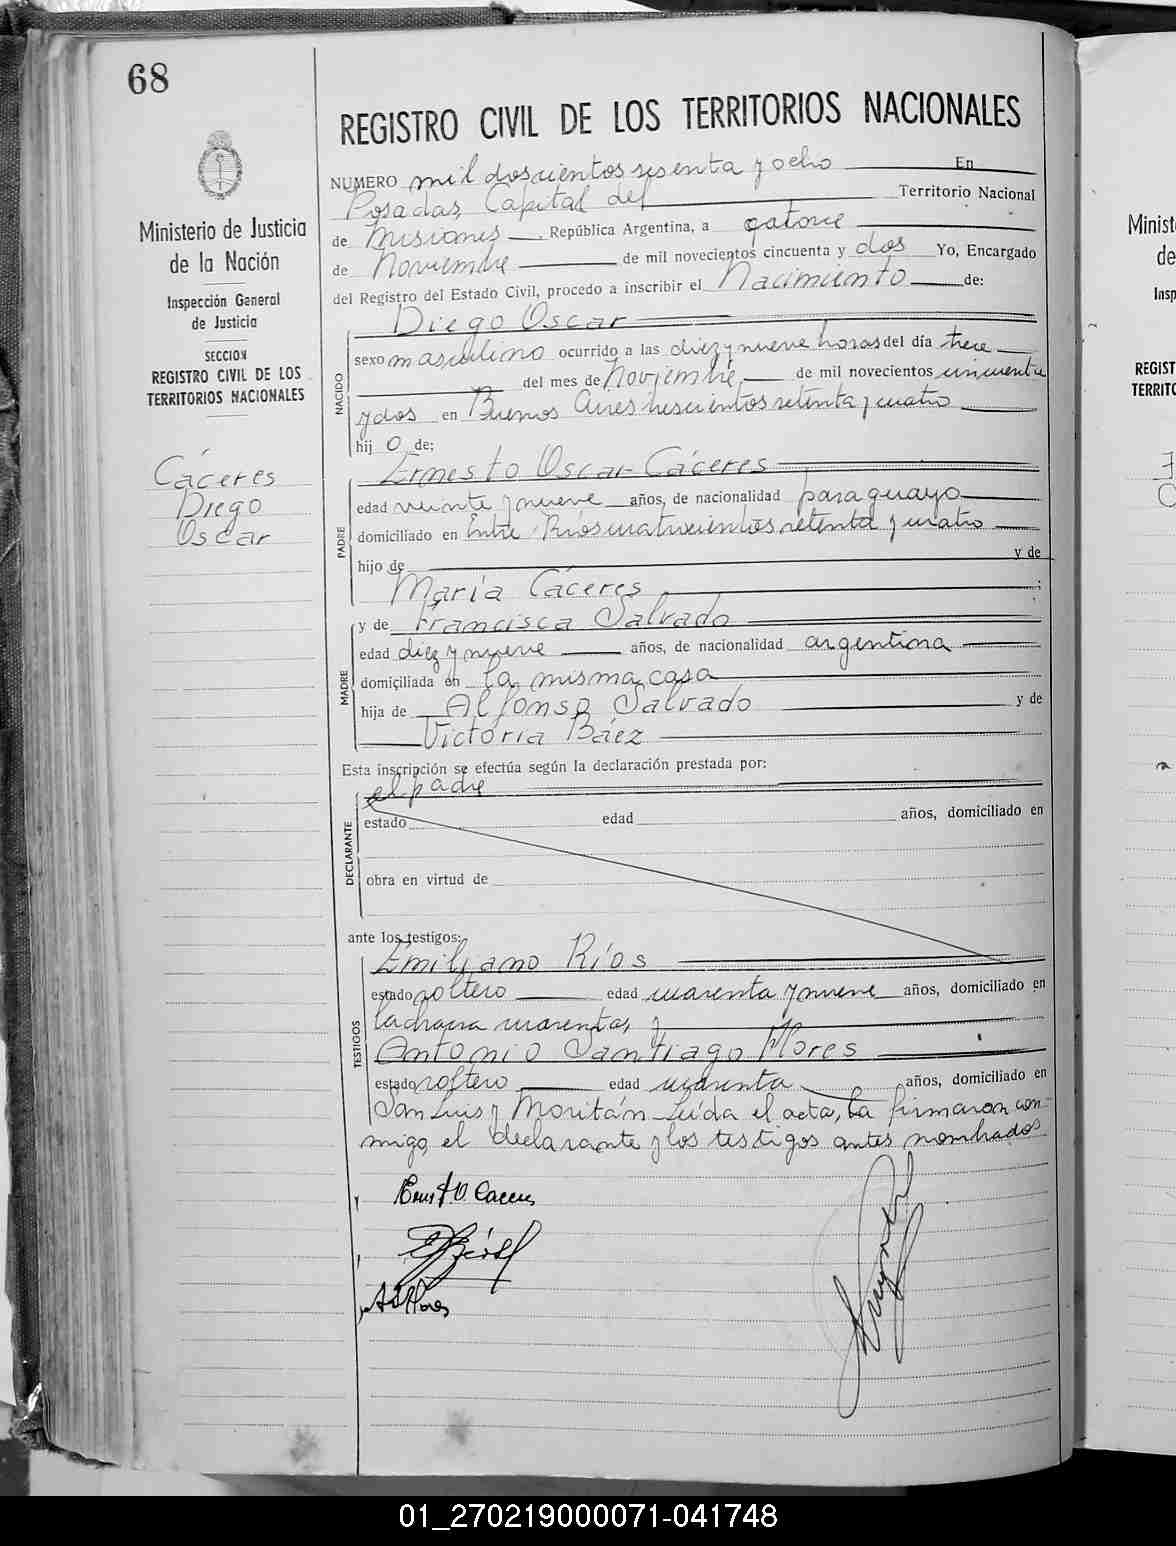 68
REGISTRO CIVIL DE LOS TERRITORIOS NACIONALES
Ministerio de Justicia
de la Nación
Inspección General
de Justicia
SECCION
REGISTRO CIVIL DE LOS
TERRITORIOS NACIONALES
Cáceres
Diego
Oscar
NUMERO mil doscientos sesenta y ocho En
Posadas, Capital del Territorio Nacional
de Misiones República Argentina, a catorce
de Noviembre de mil novecientos cincuenta y dos Yo, Encargado
del Registro del Estado Civil, procedo a inscribir el Nacimiento de:
Diego Oscar
NACIDO
sexo masculino ocurrido a las diez y nueve horas del día trece
del mes de Noviembre, de mil novecientos cincuenta
y dos en Buenos Aires trescientos setenta y cuatro
hij o de:
Ernesto Oscar Cáceres
PADRE
edad veinte y nueve años, de nacionalidad paraguayo
domiciliado en Entre Ríos cuatrocientos setenta y cuatro
hijo de y de
María Cáceres ;
y de Francisca Salvado
MADRE
edad diez y nueve años, de nacionalidad argentina
domiciliada en la misma casa
hija de Alfonso Salvado y de
Victoria Báez
Esta inscripción se efectúa según la declaración prestada por:
el padre
DECLARANTE
estado edad años, domiciliado en
obra en virtud de
ante los testigos:
Emiliano Ríos
TESTIGOS
estado soltero edad cuarenta y nueve años, domiciliado en
la chacra cuarenta, y
Antonio Santiago Flores
estado soltero edad cuarenta años, domiciliado en
San Luis y Moritán Leída el acta, la firmaron con-
migo, el declarante y los testigos antes nombrados
Ernesto O. Caceres
A S Flores
Minist
de
Insp
REGIST
TERRITO
01_270219000071-041748